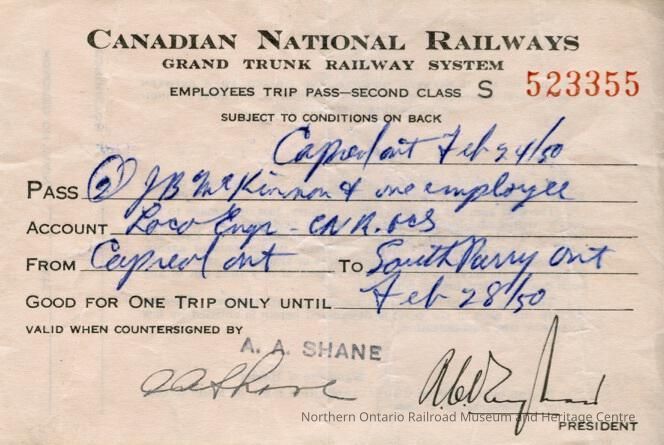 CANADIAN NATIONAL RAILWAYS
GRAND TRUNK RAILWAY SYSTEM
EMPLOYEES TRIP PASS—SECOND CLASS S 523355
SUBJECT TO CONDITIONS ON BACK
Capreol ont Feb 24/50
PASS (2) JB McKinnon & one employee
ACCOUNT Loco Engr - CNR.
FROM Capreol ont TO South Parry ont
GOOD FOR ONE TRIP ONLY UNTIL Feb 28/50
VALID WHEN COUNTERSIGNED BY
A. A. SHANE
AAShane
Northern Ontario Railroad Museum and Heritage Centre
PRESIDENT